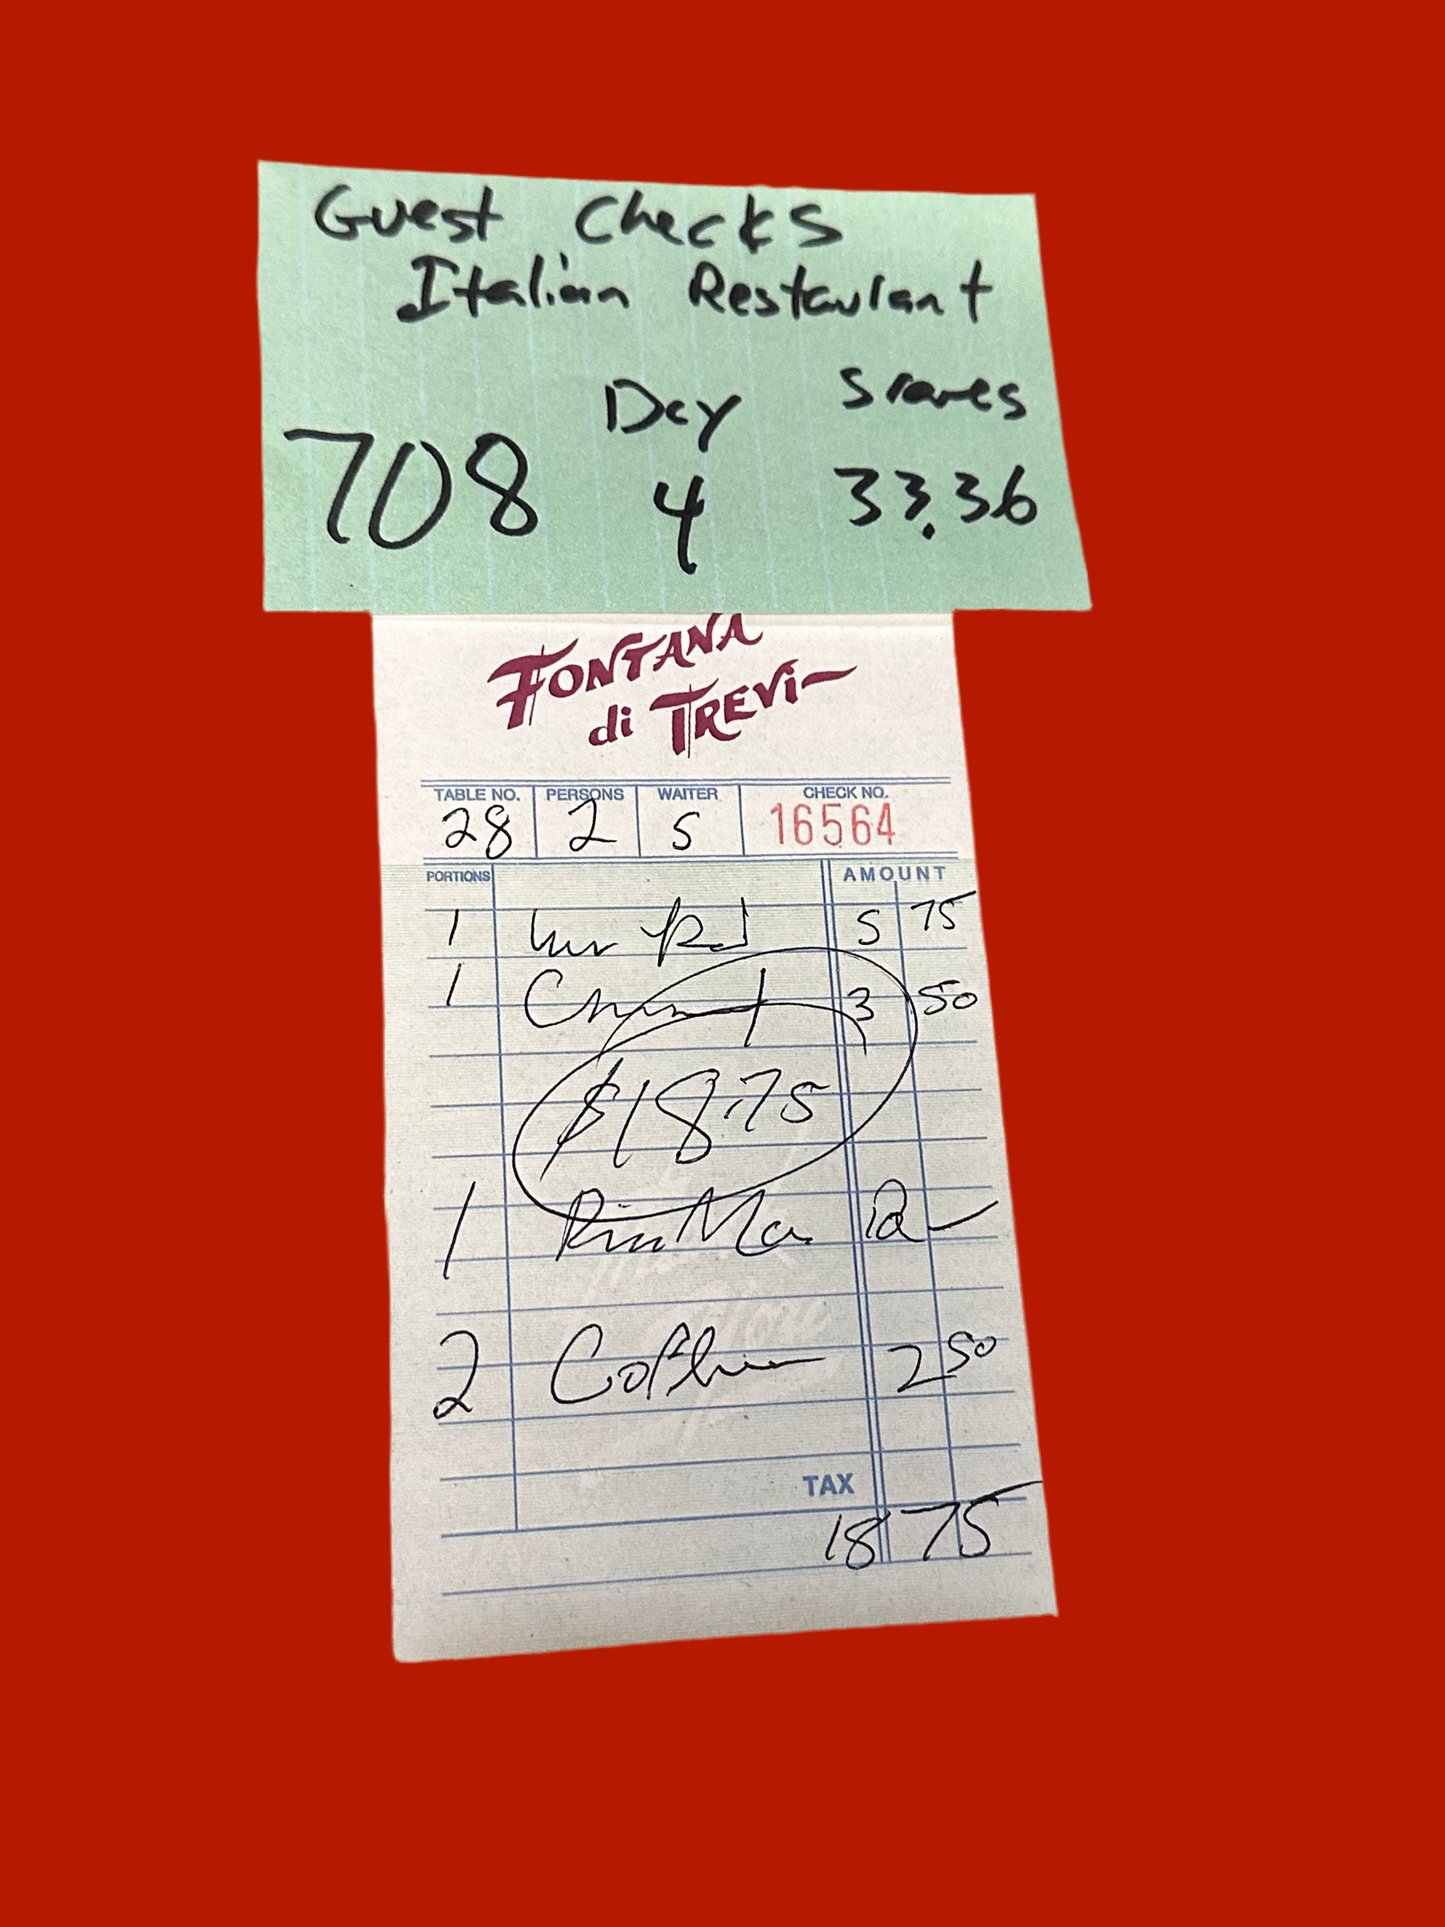 Guest Checks
Italian Restaurant
Day Sraves
708 4 33.36
FONTANA
di TREVi
TABLE NO. PERSONS WAITER CHECK NO.
28 2 S 16564
PORTIONS AMOUNT
1 5 75
1 3 50
$18.75
1
2 2 50
TAX
18 75